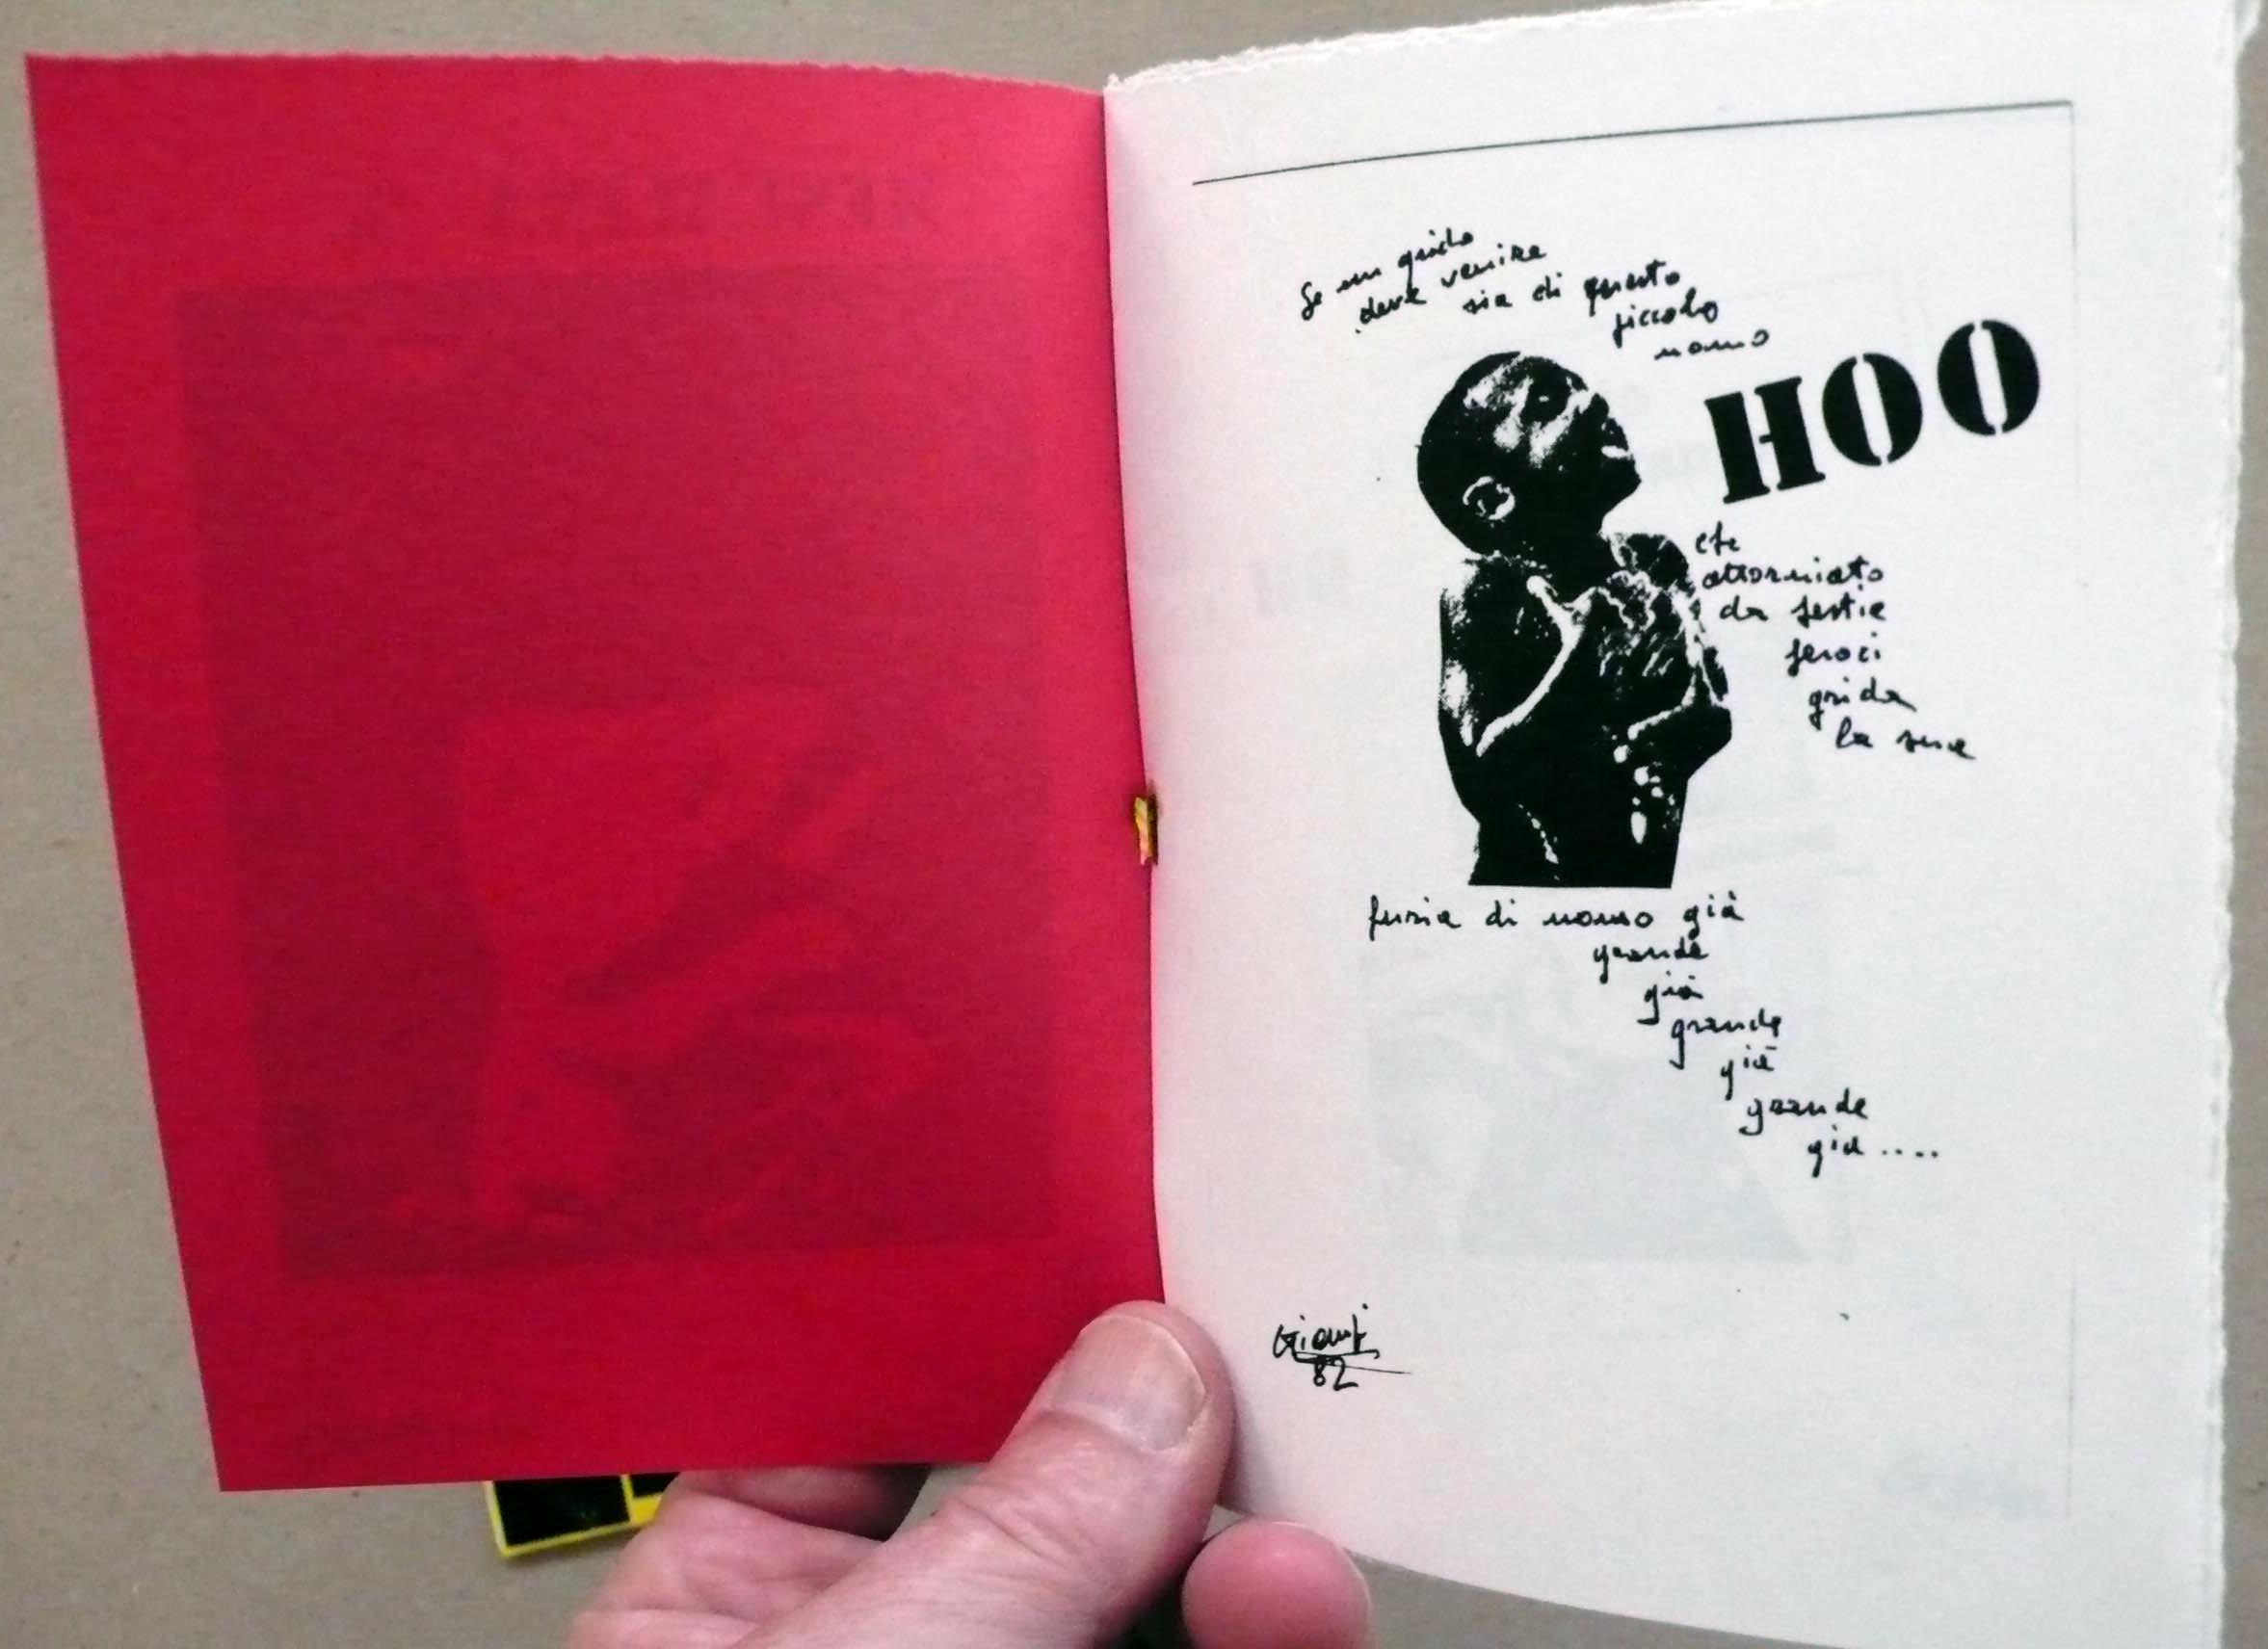 Se un grido
deve venire
sia di questo
piccolo
uomo
HOO
che
attorniato
da bestie
feroci
grida
la sua
furia di uomo già
grande
già
grande
già
grande
già ....
82